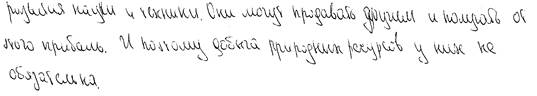 развития науки и техники. Они могут продавать другим и получать от
этого прибыль. И поэтому добыча природных ресурсов у них не
обязательна.